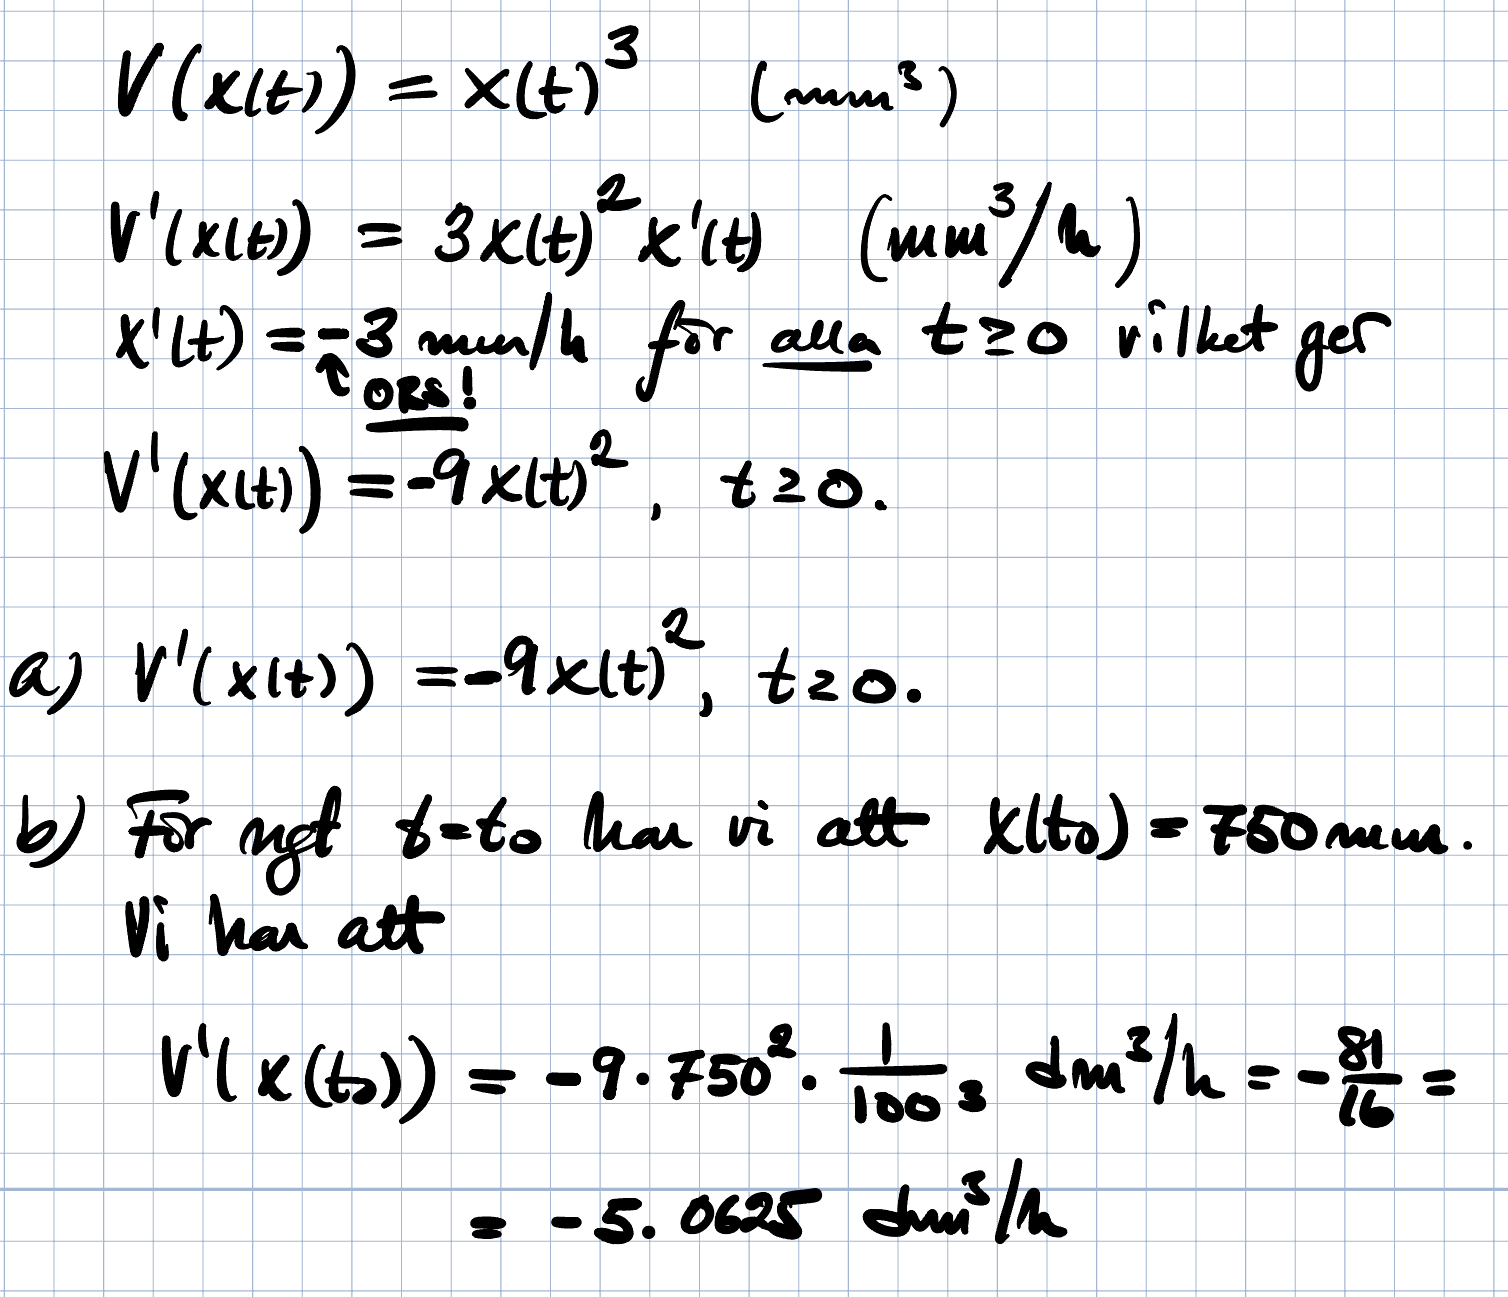 V(x(t)) = x(t)³ (mm³)
V'(x(t)) = 3x(t)² x'(t) (mm³/h)
x'(t) = -3 mm/h för alla t ≥ 0 vilket ger
↑ OBS!
V'(x(t)) = -9x(t)², t ≥ 0.
a) V'(x(t)) = -9x(t)², t ≥ 0.
b) För ngt t=t₀ har vi att x(t₀) = 750 mm.
Vi har att
V'(x(t₀)) = -9 · 750² · 1/100³ dm³/h = -81/16 =
= -5.0625 dm³/h